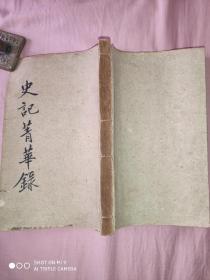 史記菁華錄
SHOT ON MI 9
AI TRIPLE CAMERA